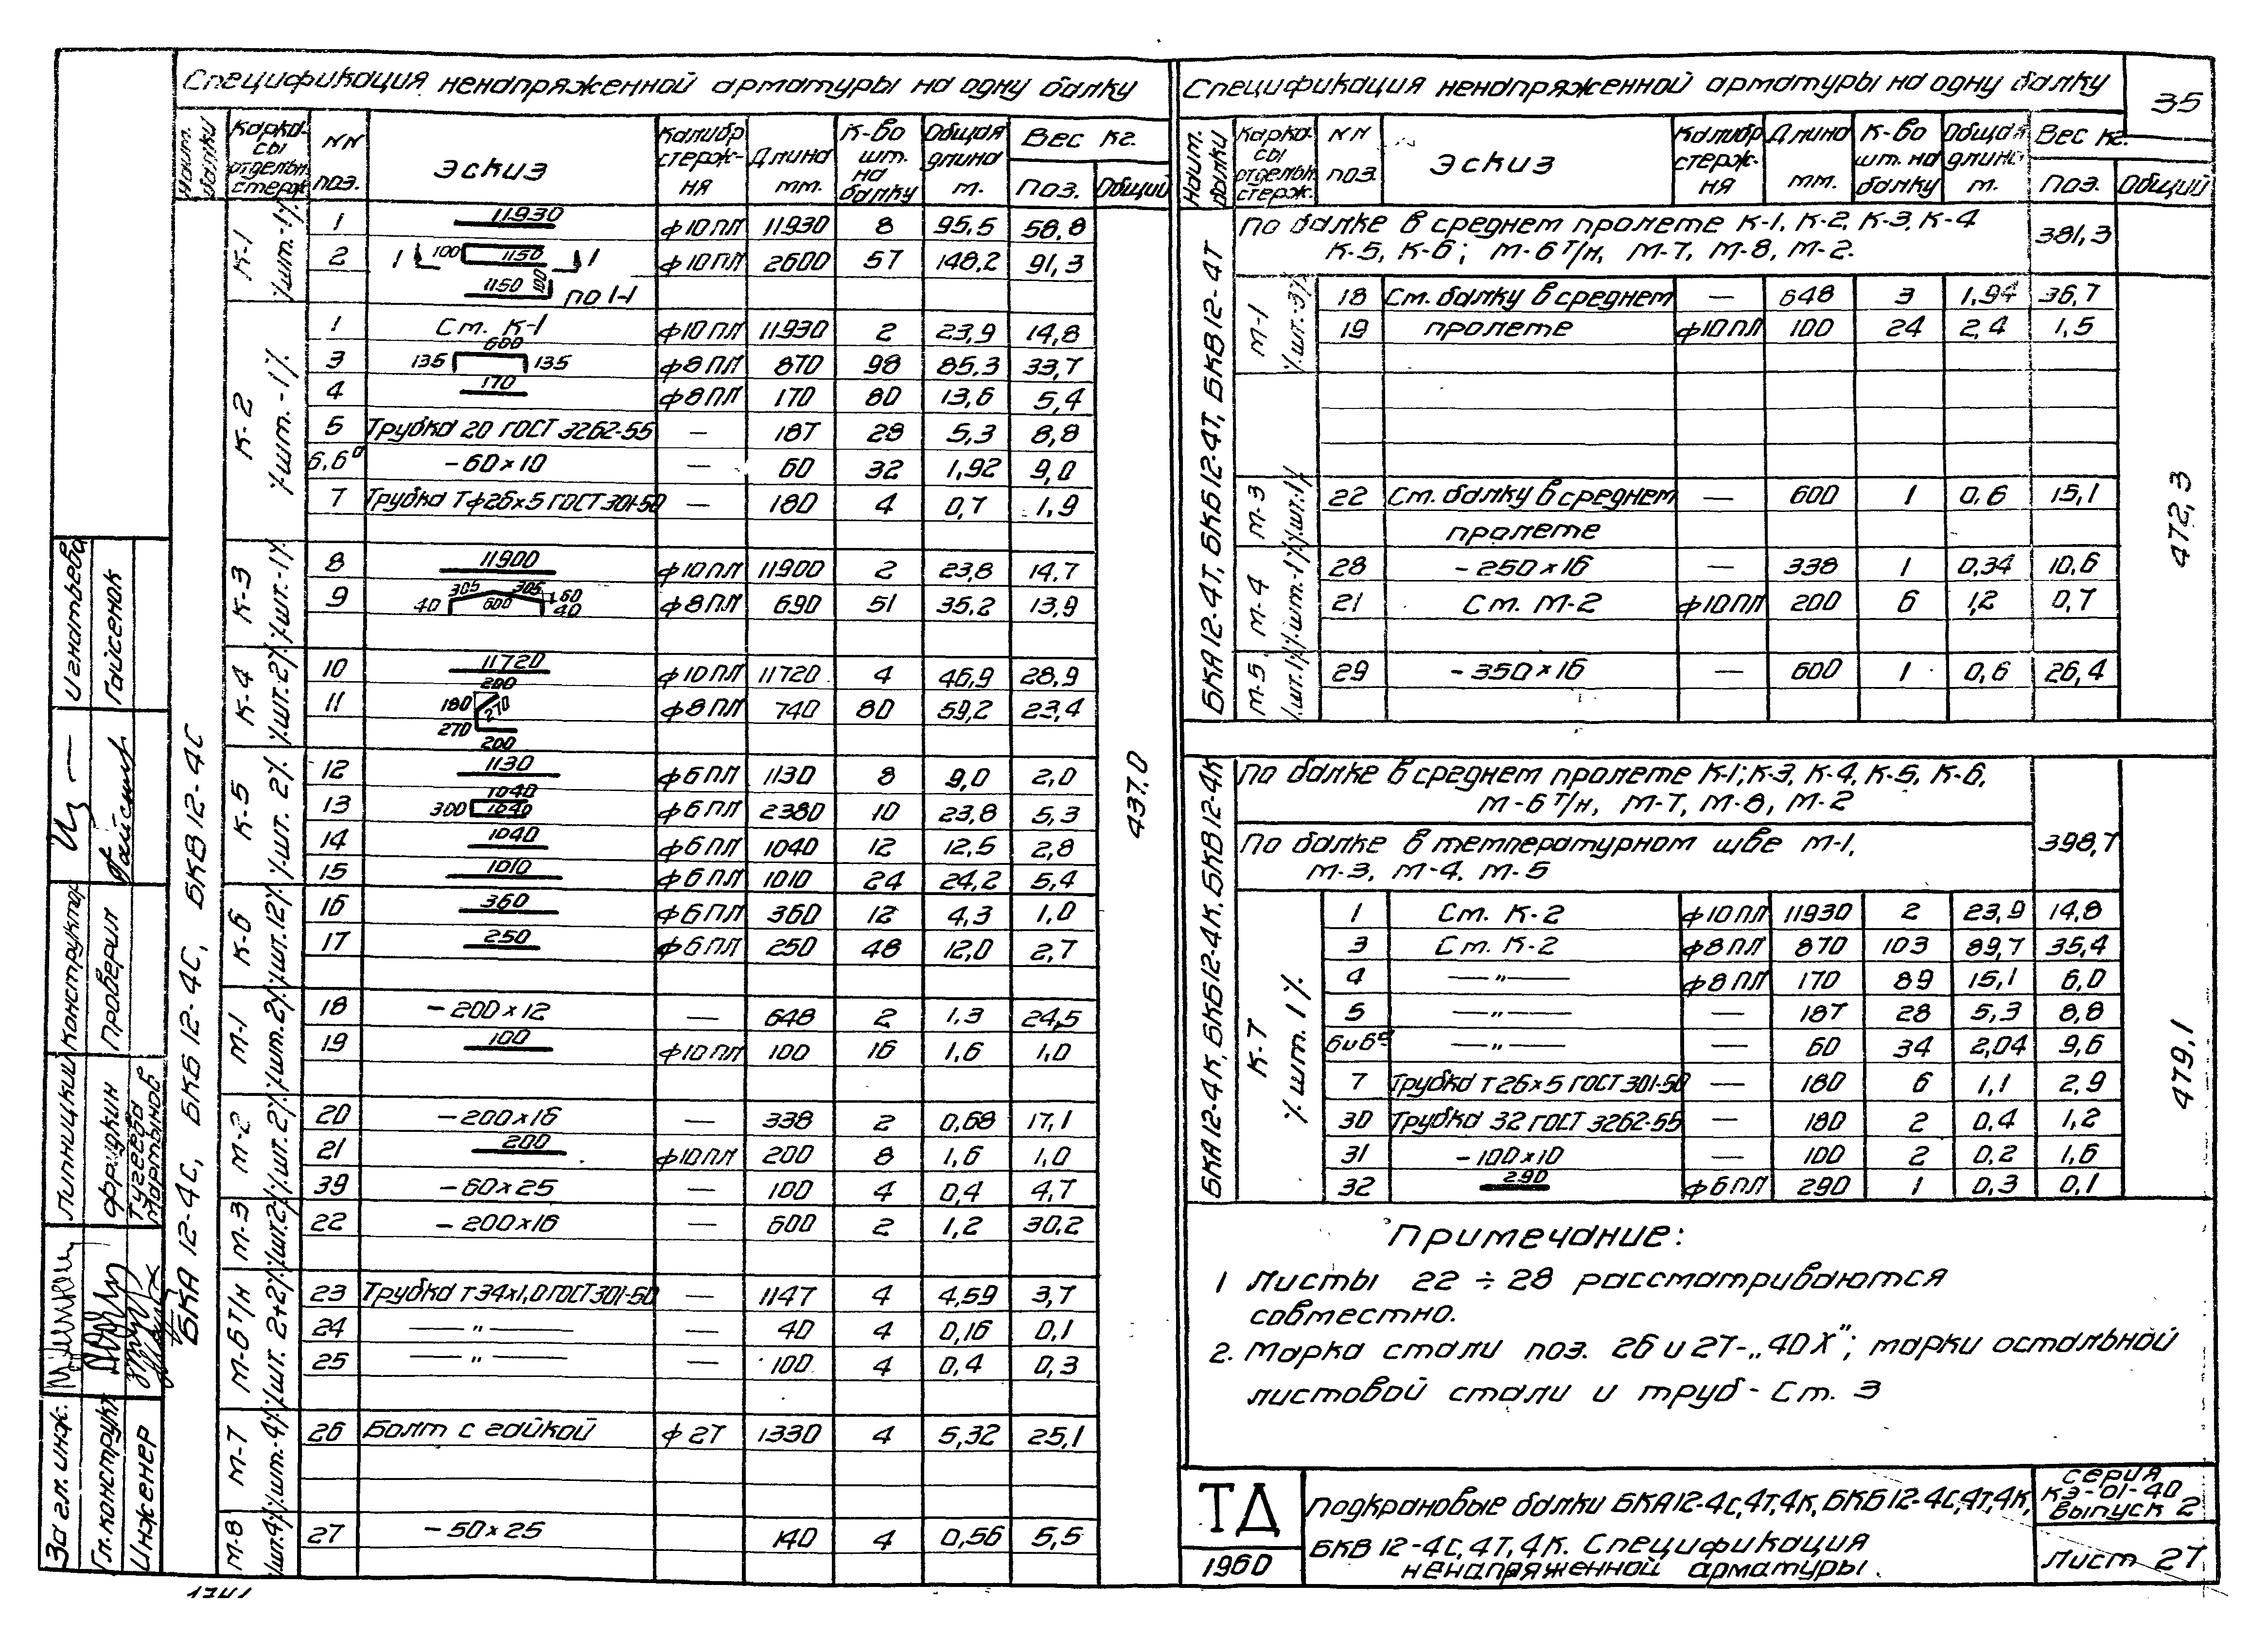 Спецификация ненапряженной арматуры на одну балку
Наим. балки | Карка-сы отдельн. стерж. | NN поз. | Эскиз | Калибр стерж-ня | Длина мм. | К-во шт. на балку | Общая длина м. | Вес кг. Поз. | Общий
БКА 12-4С, БКБ 12-4С, БКВ 12-4С
437,0
К-1 /шт.-1/
1 11930 ф10ПЛ 11930 8 95,5 58,8
2 1 100 1150 1 ф10ПЛ 2600 57 148,2 91,3
1150 100 по 1-1
К-2 /шт.-1/
1 Ст. К-1 ф10ПЛ 11930 2 23,9 14,8
3 135 600 135 ф8ПЛ 870 98 85,3 33,7
4 170 ф8ПЛ 170 80 13,6 5,4
5 Трубка 20 ГОСТ 3262-55 — 187 28 5,3 8,8
6,6а -60×10 — 60 32 1,92 9,0
7 Трубка Тф26×5 ГОСТ 301-50 — 180 4 0,7 1,9
К-3 /шт.-1/
8 11900 ф10ПЛ 11900 2 23,8 14,7
9 40 305 600 305 60 40 ф8ПЛ 690 51 35,2 13,9
К-4 /шт.2/
10 11720 ф10ПЛ 11720 4 46,9 28,9
11 200 180 270 270 200 ф8ПЛ 740 80 59,2 23,4
К-5 /шт. 2/
12 1130 ф6ПЛ 1130 8 9,0 2,0
13 1040 300 1040 ф6ПЛ 2380 10 23,8 5,3
14 1040 ф6ПЛ 1040 12 12,5 2,8
15 1010 ф6ПЛ 1010 24 24,2 5,4
К-6 /шт.12/
16 360 ф6ПЛ 360 12 4,3 1,0
17 250 ф6ПЛ 250 48 12,0 2,7
М-1 /шт.2/
18 -200×12 — 648 2 1,3 24,5
19 100 ф10ПЛ 100 16 1,6 1,0
М-2 /шт.2/
20 -200×16 — 338 2 0,68 17,1
21 200 ф10ПЛ 200 8 1,6 1,0
39 -60×25 — 100 4 0,4 4,7
М-3 /шт.2/
22 -200×16 — 600 2 1,2 30,2
М-6Т/Н /шт. 2+2/
23 Трубка Т34×1,0 ГОСТ 301-50 — 1147 4 4,59 3,7
24 —„— — 40 4 0,16 0,1
25 —„— — 100 4 0,4 0,3
М-7 /шт.-4/
26 Болт с гайкой ф27 1330 4 5,32 25,1
М-8 /шт.4/
27 -50×25 140 4 0,56 5,5
Спецификация ненапряженной арматуры на одну балку
35
Наим. балки | Карка-сы отдельн. стерж. | NN поз. | Эскиз | Калибр стерж-ня | Длина мм. | К-во шт. на балку | Общая длина м. | Вес кг. Поз. | Общий
БКА 12-4Т, БКБ 12-4Т, БКВ 12-4Т
472,3
По балке в среднем пролете К-1, К-2, К-3, К-4
К-5, К-6; М-6Т/Н, М-7, М-8, М-2. 381,3
М-1 /шт.-3/
18 Ст. балку в среднем — 648 3 1,94 36,7
19 пролете ф10ПЛ 100 24 2,4 1,5
М-3 /шт.1/
22 Ст. балку в среднем — 600 1 0,6 15,1
пролете
М-4 /шт.-1/
28 -250×16 — 338 1 0,34 10,6
21 Ст. М-2 ф10ПЛ 200 6 1,2 0,7
М-5 /шт.1/
29 -350×16 — 600 1 0,6 26,4
БКА 12-4К, БКБ 12-4К, БКВ 12-4К
479,1
По балке в среднем пролете К-1; К-3, К-4, К-5, К-6,
М-6Т/Н, М-7, М-8, М-2
По балке в температурном шве М-1,
М-3, М-4, М-5 398,7
К-7 /шт. 1/
1 Ст. К-2 ф10ПЛ 11930 2 23,9 14,8
3 Ст. К-2 ф8ПЛ 870 103 89,7 35,4
4 —„— ф8ПЛ 170 89 15,1 6,0
5 —„— — 187 28 5,3 8,8
6и6а —„— — 60 34 2,04 9,6
7 Трубка Т26×5 ГОСТ 301-50 — 180 6 1,1 2,9
30 Трубка 32 ГОСТ 3262-55 — 180 2 0,4 1,2
31 -100×10 — 100 2 0,2 1,6
32 290 ф6ПЛ 290 1 0,3 0,1
Примечание:
1 Листы 22 ÷ 28 рассматриваются
совместно.
2. Марка стали поз. 26 и 27-„40Х"; марки остальной
листовой стали и труб - Ст. 3
ТД
1960
Подкрановые балки БКА12-4С,4Т,4К, БКБ12-4С,4Т,4К,
БКВ 12-4С,4Т,4К. Спецификация
ненапряженной арматуры.
серия
КЭ-01-40
выпуск 2
Лист 27
За гл. инж. Липницкий Конструктор Игнатьева
Гл. конструкт Фридкин Проверил Гайсенок
Инженер Тугеева Мартынов
1741